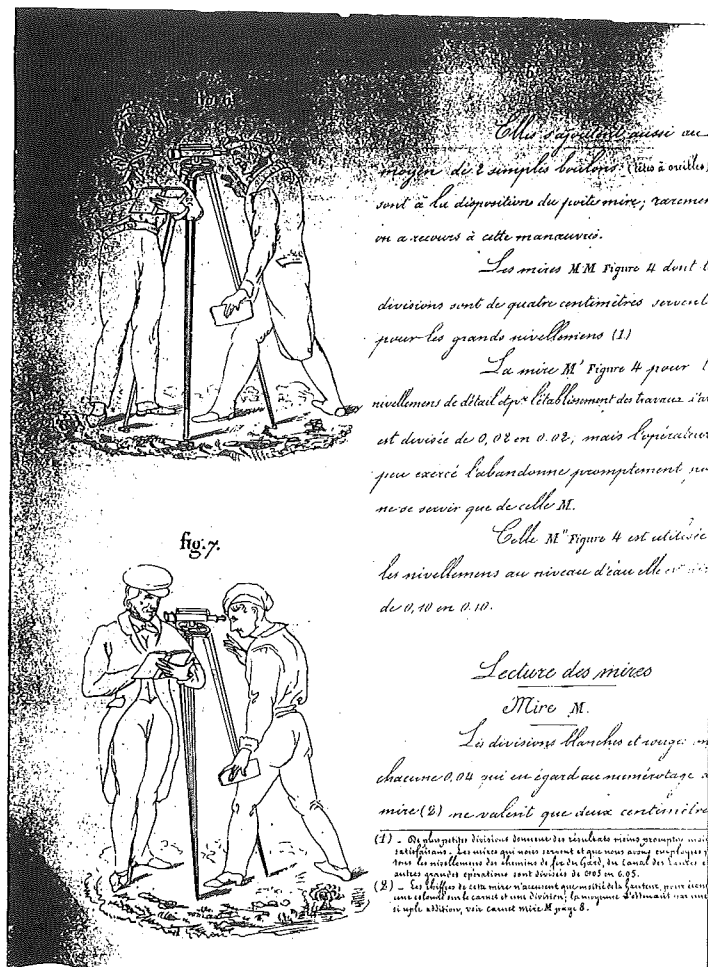 fig. 6.
Elles s'ajoutent aussi au
moyen de 2 simples boulons (têtes à oreilles)
sont à la dispositions du porte mire; raremen
on a recours à cette manœuvres.
Les mires MM Figure 4 dont l
divisions sont de quatre centimètres servent
pour les grands nivellemens (1)
La mire M' Figure 4 pour l
nivellemens de détail et pr l'établissement des travaux d'ar
est divisée de 0,02 en 0.02, mais l'opérateur
peu exercé l'abandonne promptement po
ne se servir que de celle M.
fig. 7.
Celle M" Figure 4 est utilisée
les nivellemens au niveau d'eau elle
de 0,10 en 0.10.
Lecture des mires
Mire M.
Les divisions blanches et rouges
chacune 0,04 qui eu égard au numérotage
mire (2) ne valent que deux centimètre
(1) - De plus petites divisions donnent des résultats moins prompts mais
satisfaisans. Les mires qui nous servent et que nous avons employées
tous les nivellemens des chemins de fer du Gard, du Canal des Landes e
autres grandes opérations sont divisées de 0.05 en 0.05.
(2) - Les chiffres de cette mire n'accusent que moitié de la hauteur, pour
une colonne sur le carnet et une division; la moyenne s'obtenant par une
simple addition, voir carnet mire M page 8.